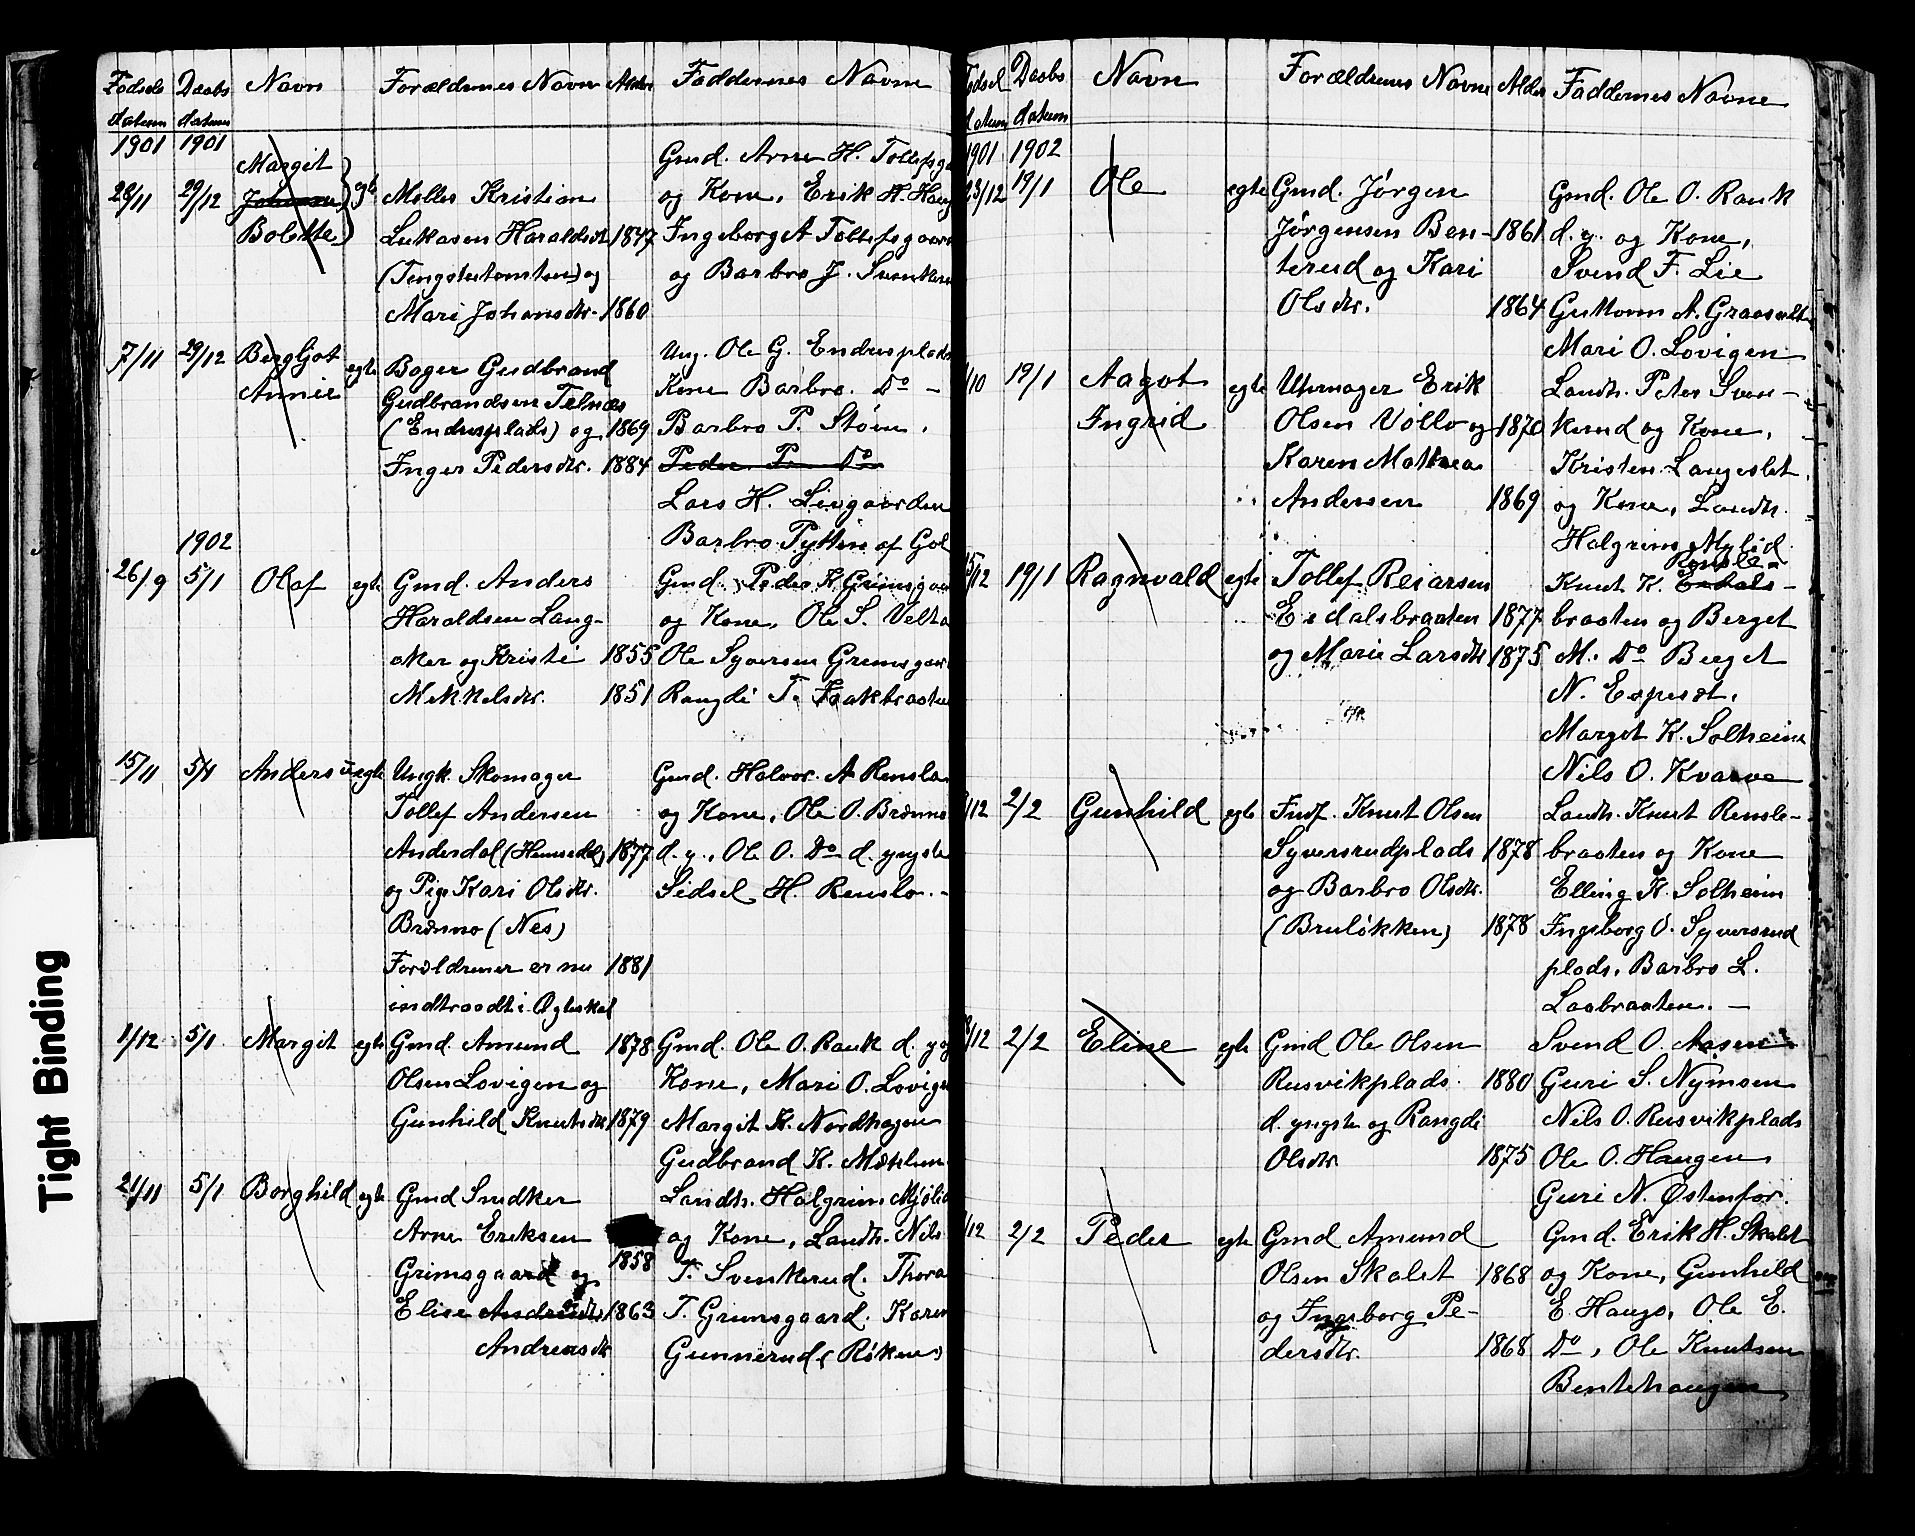 Fødsels Daabs Navn Forældrenes Navne Alder Faddernes Navne
datum datum
1901 1901
28/11 29/12 Margit Johanne Bolette egte
Møller Kristian
Lukasen Haraldset 1847
(Tengstertomten) og
Mari Johansdtr. 1860
Gmd. Arne H. Tollefsga
og Kone, Erik H. Haug
Ingeborg A Tollefsgaar
og Barbro J. Svenker
7/11 29/12 Bergljot Annie egte
Bager Gudbrand
Gudbrandsen Telnæs
(Endrusplads) og 1869
Inger Pedersdtr. 1884
Ung. Ole G. Endrusplads
Kone Barbro Do -
Barbro P. Støen,
Peder P. Do
Lars H. Liegaarden
Barbro Pytten af Gol
1902
26/9 5/1 Olaf egte
Gmd. Anders
Haraldsen Lang-
aker og Kristi 1855
Mekkelsdtr. 1851
Gmd. Peder K Grimsgaar
og Kone, Ole S. Velta
Ole Syversen Grimsgaar
Rangdi T. Haakbraaten
15/11 5/1 Anders uegte
Ungk. Skomager
Tollef Andersen
Anderdal (Hemsedal) 1877
og Pige Kari Olsdtr.
Brænno (Nes)
Forældrener er nu 1881
indtraadt i Ægteskab
Gmd. Halvor A Renslo
og Kone, Ole O. Brænno
d. y., Ole O. Do d. yngste
Sidsel H. Renslo. -
1/12 5/1 Margit egte
Gmd. Amund 1878
Olsen Lovigen og
Gunhild Knutsdtr 1879
Gmd. Ole O. Rauk d. y og
Kone, Mari O. Lovigen
Margit K. Nordhagen
Gudbrand K.
21/11 5/1 Borghild egte
Gmd Snedker
Arne Eriksen
Grimsgaard og 1858
Elise Andersdtr 1863
Andreasdtr
Landh. Halgrim Mjølid
og Kone, Landh. Nils
T. Svenkerud. Thora
T. Grimsgaard. Karen
Gunnerud (Røken)
Fødsel Daabs Navn Forældrenes Navne Alder Faddernes Navne
datum datum
1901 1902
23/12 19/1 Ole egte
Gmd. Jørgen
Jørgensen Ben- 1861
terud og Kari
Olsdtr. 1864
Gmd. Ole O. Rauk
d. y. og Kone,
Svend F. Lie
Guttorm A. Graasalt
Mari O. Lovigen
/10 19/1 Aagot Ingrid egte
Uhrmager Erik
Olsen Vøllo og 1870
Karen Mathea
Andersen 1869
Landh. Peter Sven-
kerud og Kone,
Kristen Langeslet
og Kone, Landh.
Halgrim Mylid
15/12 19/1 Ragnvald egte
Tollef Reiarsen
Eidalsbraaten 1877
og Marie Larsdtr 1875
Rensle-
Knut K. Eidals-
braaten og Berget
M. Do Berget
N. Espeset,
Margit K. Solheim
Nils O. Kvarve
/12 2/2 Gunhild egte
Indf. Knut Olsen
Syversrudplads 1878
og Barbro Olsdtr.
(Bruløkken) 1878
Landh. Knut Rensle-
braaten og Kone
Elling K. Solheim
Ingeborg O. Syversrud
plads, Barbro L.
Laabraaten. -
8/12 2/2 Eline egte
Gmd Ole Olsen
Rusvikplads 1880
d. yngste og Rangdi
Olsdtr 1875
Svend O. Aasen
Guri S. Nymoen
Nils O. Rusvikplads
Ole O. Haugen
Guri N. Østenfor
/12 2/2 Peder egte
Gmd Amund
Olsen Skalet 1868
og Ingeborg Pe-
dersdtr. 1868
Gmd. Erik H. Skalet
og Kone, Gunhild
E. Haugo, Ole E.
Do, Ole Knutsen
Bentehaugen
Tight Binding